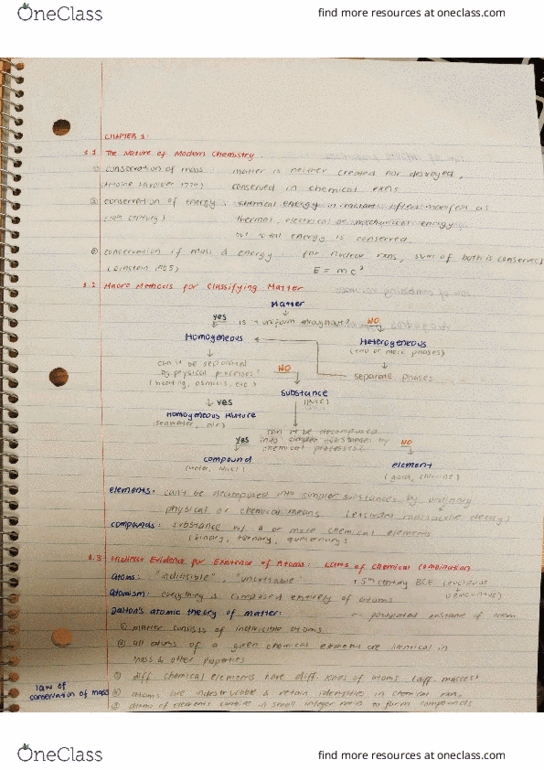 OneClass
find more resources at oneclass.com
CHAPTER 1:
1.1 The Nature of Modern Chemistry.
① conservation of mass matter is neither created nor destroyed,
conserved in chemical rxns.
② conservation of energy: chemical energy in
thermal, electrical or mechanical energy
but total energy is conserved.
③ conservation of mass & energy: for nuclear rxns, sum of both is conserved
(Einstein 1905) E = mc²
1.2 Macro Methods for Classifying Matter
Matter
yes is it uniform throughout? NO
Homogeneous Heterogeneous
(two or more phases)
can it be separated
by physical processes? NO separate phases
Substance
yes
Homogeneous Mixture
can it be decomposed
yes into simpler substances by NO
chemical processes?
compound element
(gold, chlorine)
elements: can't be decomposed into simpler substances by ordinary
physical or chemical means. (excludes radioactive decay)
compounds: substance w/ 2 or more chemical elements
(binary, ternary, quaternary)
1.3 Indirect Evidence for Existence of Atoms: Laws of Chemical Combination
atoms: "indivisible", "uncuttable" 5th century BCE
Atomism: everything is composed entirely of atoms
Dalton's atomic theory of matter: existence of
① matter consists of indivisible atoms
② all atoms of a given chemical element are identical in
mass & other properties
③ diff. chemical elements have diff. kinds of atoms (diff. masses)
law of
conservation of mass ④ atoms are indestructible & retain identities in chemical rxn.
⑤ atoms of elements combine in small integer ratios to form compounds
OneClass
find more resources at oneclass.com